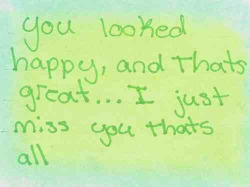 you looked
happy, and Thats
great... I just
miss you thats
all